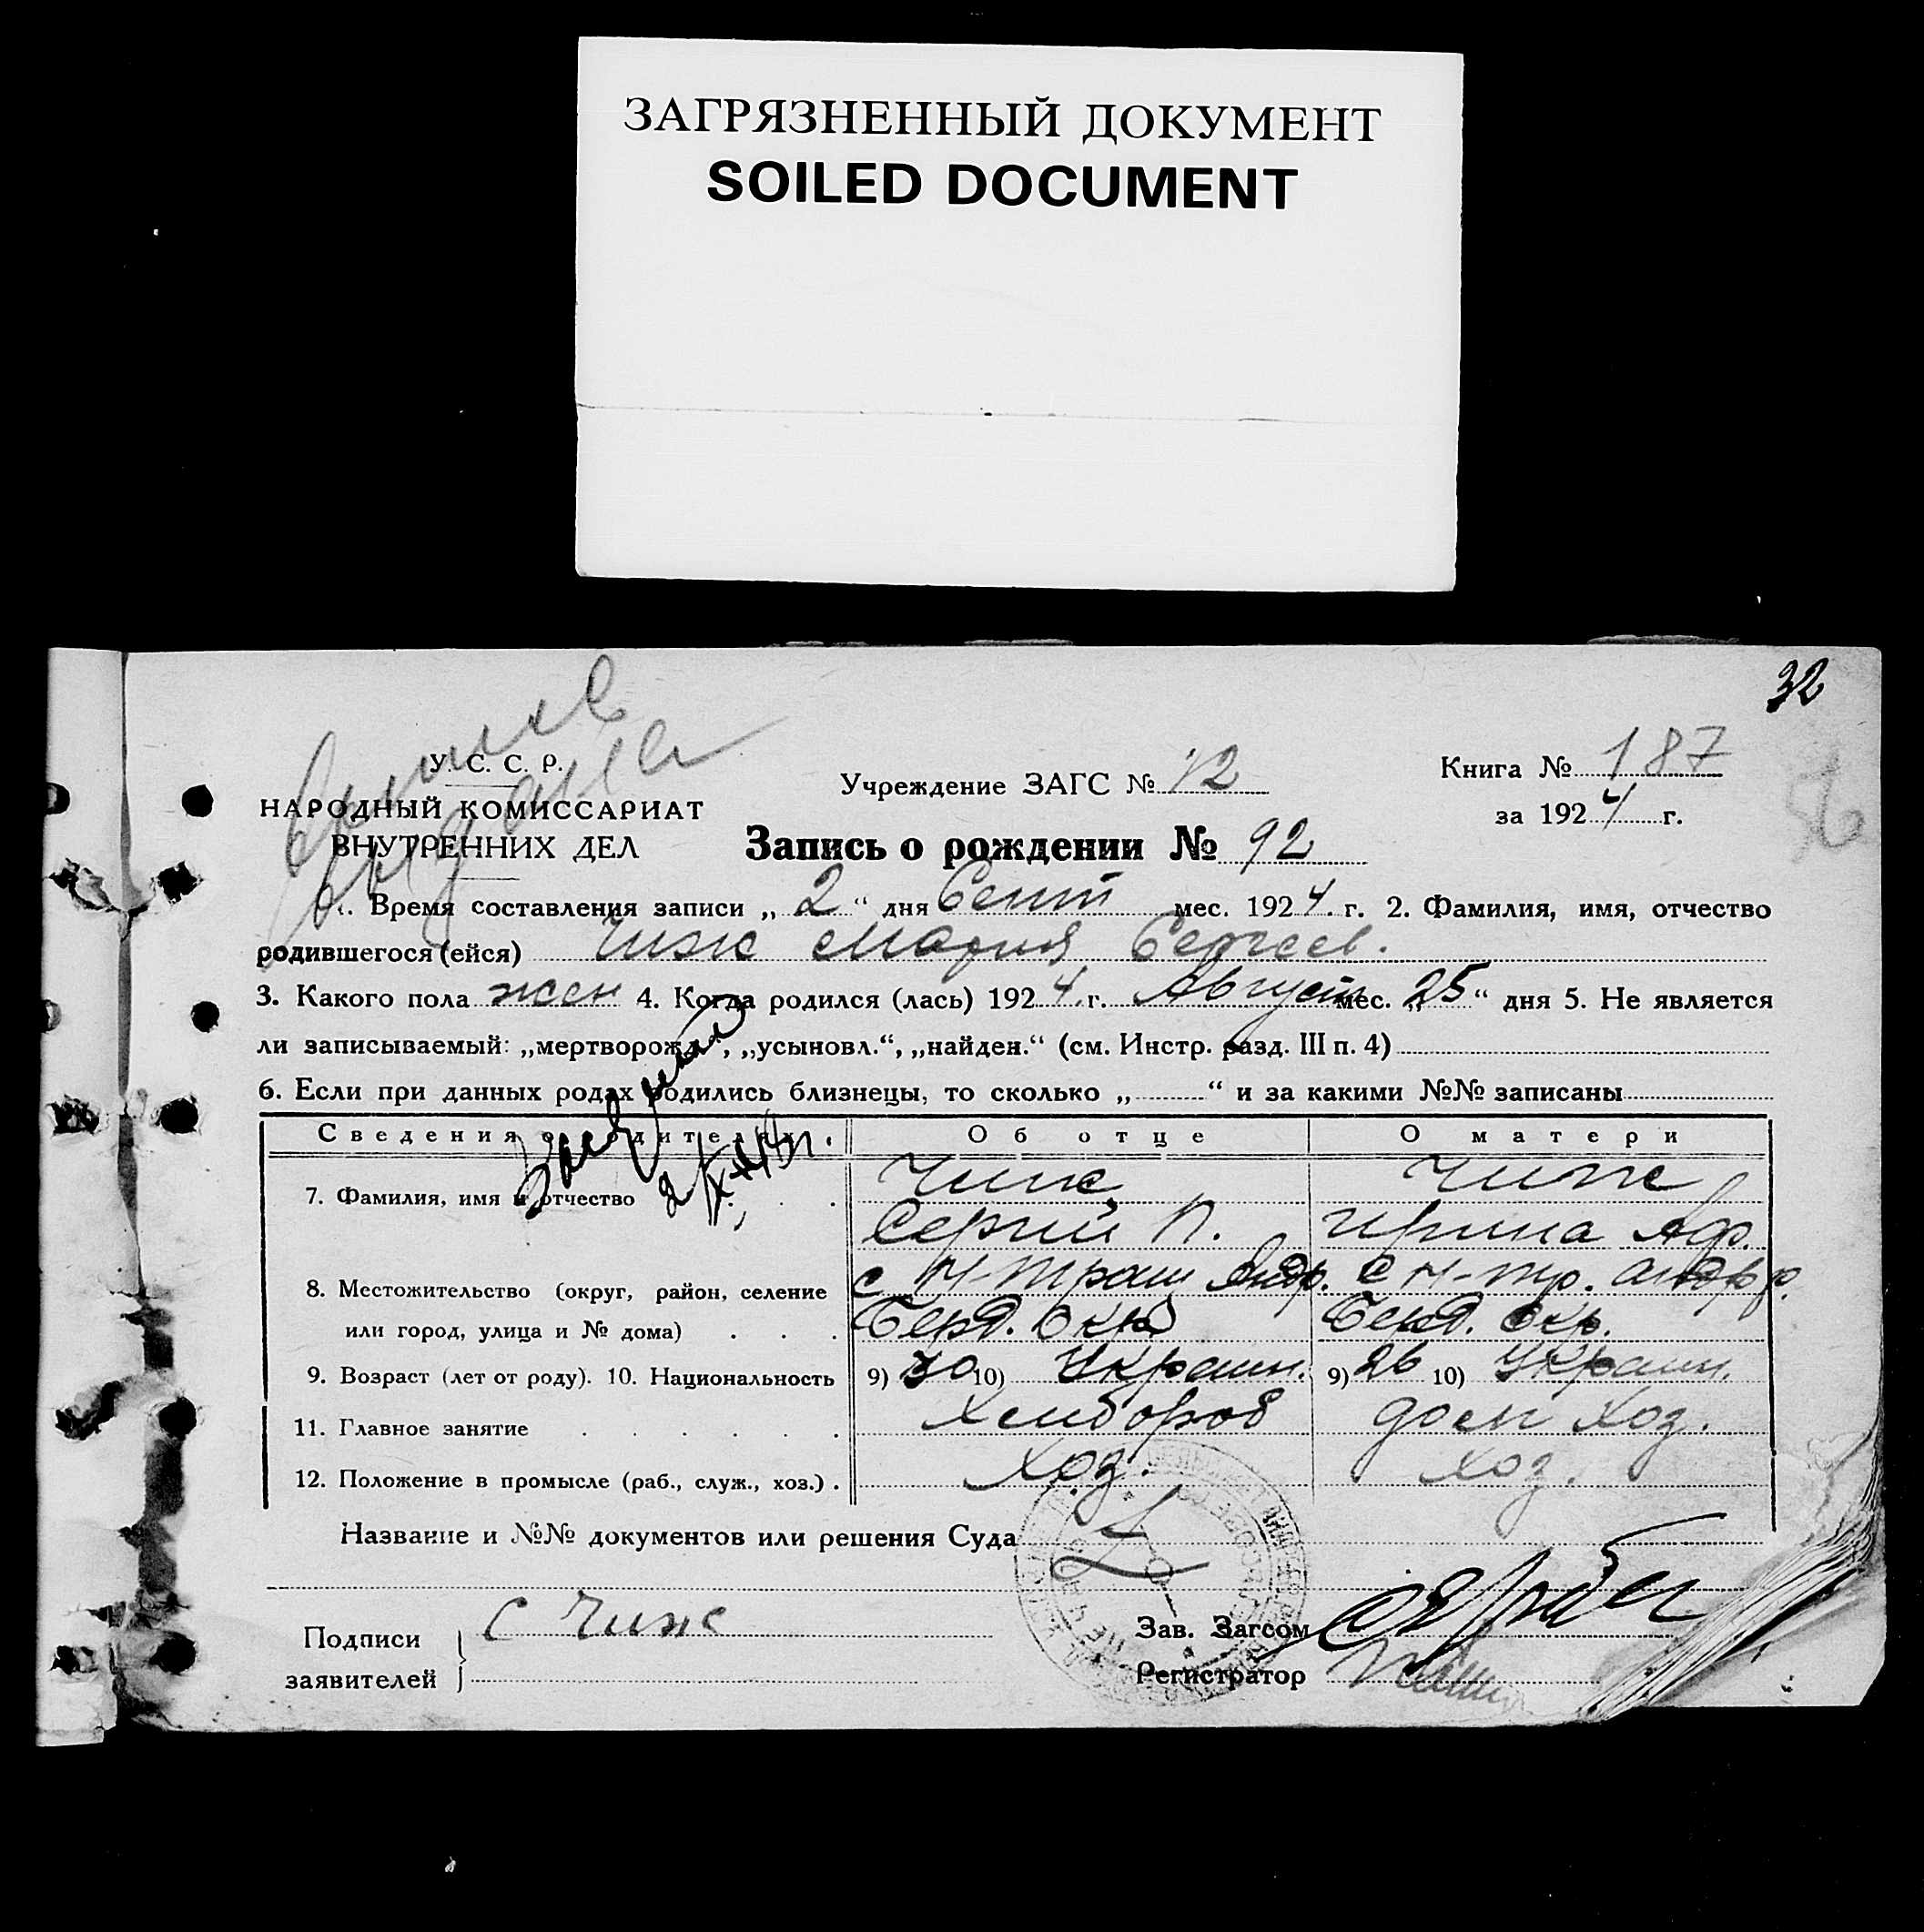 ЗАГРЯЗНЕННЫЙ ДОКУМЕНТ
SOILED DOCUMENT
32
У. С. С. Р.
НАРОДНЫЙ КОМИССАРИАТ
ВНУТРЕННИХ ДЕЛ
Учреждение ЗАГС № 12
Книга № 187
за 1924 г.
56
Запись о рождении № 92
1. Время составления записи „ 2 “ дня Сент мес. 1924 г. 2. Фамилия, имя, отчество
родившегося (ейся) Чиж Мария Сергеев.
3. Какого пола жен 4. Когда родился (лась) 1924 г. Август мес. „ 25 “ дня 5. Не является
ли записываемый: „мертворожд“, „усыновл.“, „найден.“ (см. Инстр. разд. III п. 4)
6. Если при данных родах родились близнецы, то сколько „ “ и за какими №№ записаны
Сведения о родителях. Об отце О матери
7. Фамилия, имя и отчество Чиж Чиж
Сергий П. Ирина Аф.
8. Местожительство (округ, район, селение с Н-Траш Андр. с Н-Тр. Андр р.
или город, улица и № дома) Берд. окр Берд. окр.
9. Возраст (лет от роду). 10. Национальность 9) 30 10) Украин. 9) 26 10) Украин.
11. Главное занятие Хлибороб дом хоз.
12. Положение в промысле (раб., служ., хоз.) . Хоз. хоз.
Название и №№ документов или решения Суда
Подписи
заявителей
С Чиж
Зав. Загсом
Регистратор